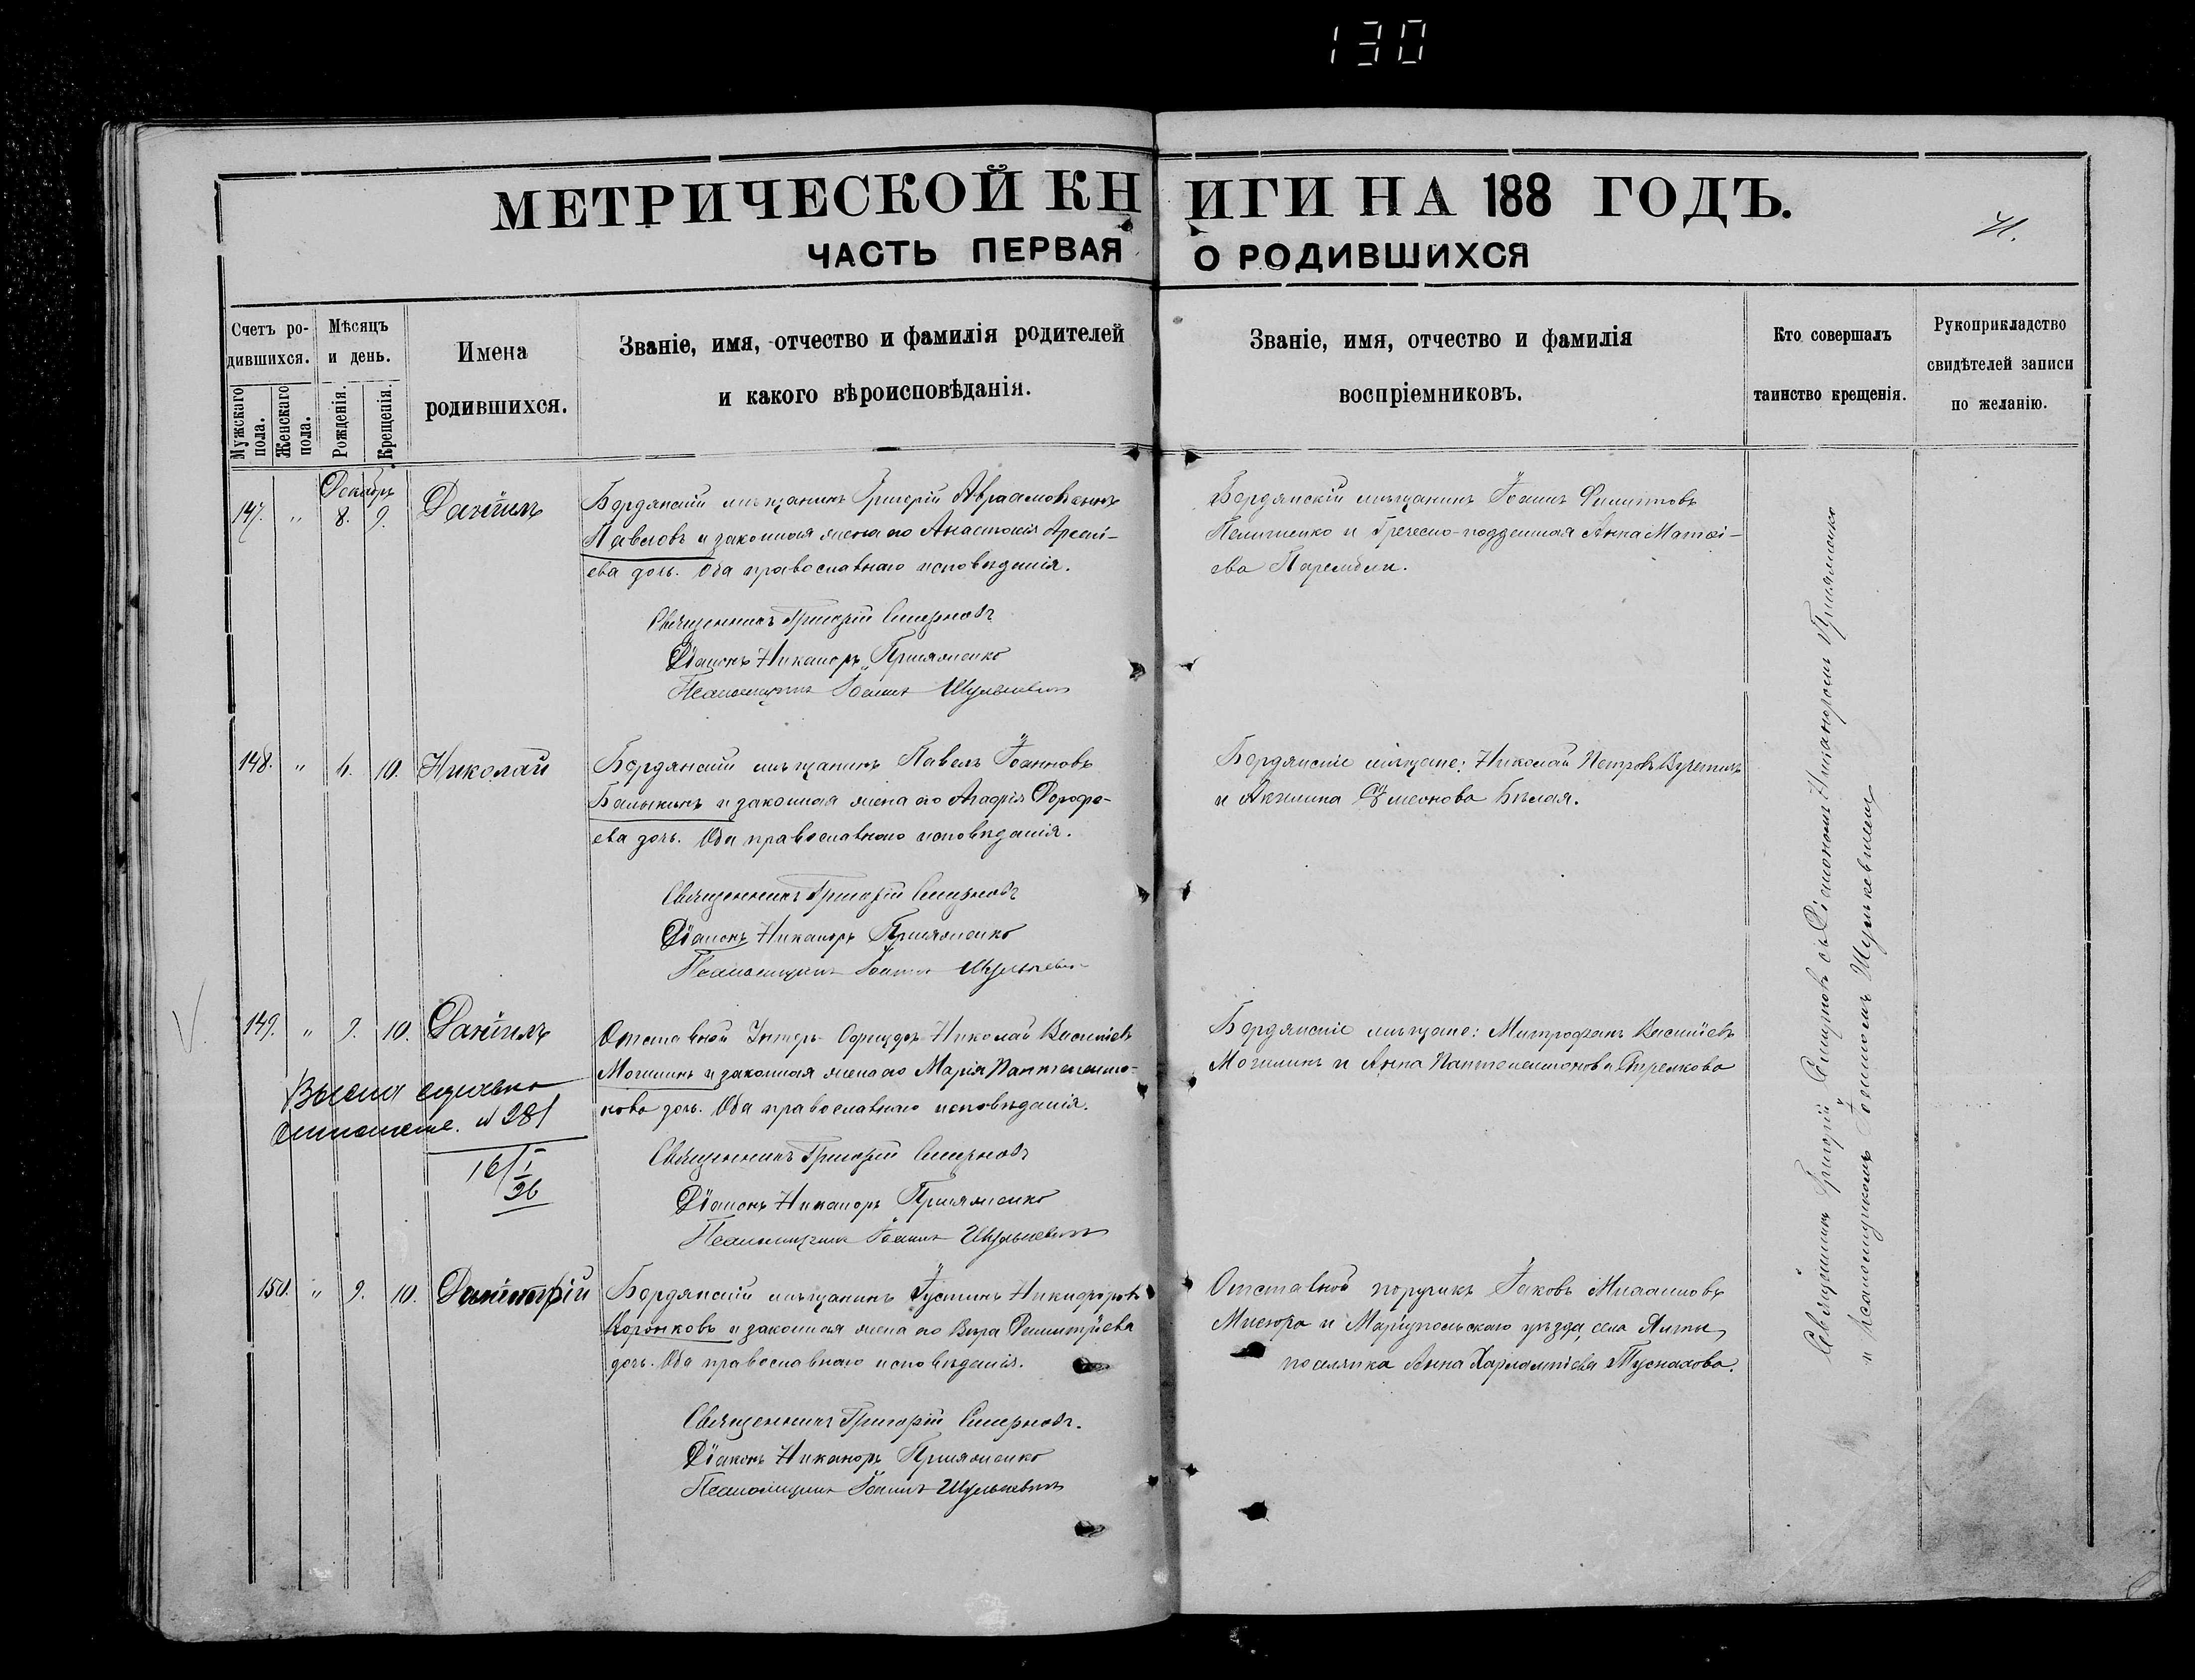 130
МЕТРИЧЕСКОЙ КНИГИ НА 188 ГОДЪ.
ЧАСТЬ ПЕРВАЯ О РОДИВШИХСЯ
Счетъ ро-
дившихся.
Мужскаго пола.
Женскаго пола.
Мѣсяцъ
и день.
Рожденія.
Крещенія.
Имена
родившихся.
Званіе, имя, отчество и фамилія родителей
и какого вѣроисповѣданія.
Званіе, имя, отчество и фамилія
воспріемниковъ.
Кто совершалъ
таинство крещенія.
Рукоприкладство
свидѣтелей записи
по желанію.
Декабрь
147. " 8. 9. Даніилъ
Бердянскій мѣщанинъ Григорій Авраамовъ сынъ
Павловъ и законная жена его Анастасія Арсені-
ева дочь. Оба православнаго исповѣданія.
Бердянскій мѣщанинъ Іоаннъ Филипповъ
и Греческо-подданная Анна Матѳі-
ева
Священникъ Григорій Смирновъ
Діаконъ Никаноръ Прияженко
Псаломщикъ Іоаннъ Шулькевичъ
148. " 6. 10. Николай
Бердянскій мѣщанинъ Павелъ Іоанновъ
Балыкинъ и законная жена его Агафія Дорофе-
ева дочь. Оба православнаго исповѣданія.
Бердянскіе мѣщане: Николай Петровъ
и Акилина Сѵмеонова Бѣлая.
Священникъ Григорій Смирновъ
Діаконъ Никаноръ Прияженко
Псаломщикъ Іоаннъ Шулькевичъ
149. " 9. 10. Даніилъ
Отставной Унтеръ-Офицеръ Николай Василіевъ
Могилинъ и законная жена его Марія Пантелеимо-
нова дочь. Оба православнаго исповѣданія.
Бердянскіе мѣщане: Митрофанъ Василіевъ
Могилинъ и Анна Пантелеимонова Стрелкова
№ 281
16/I
26
Священникъ Григорій Смирновъ
Діаконъ Никаноръ Прияженко
Псаломщикъ Іоаннъ Шулькевичъ
150. " 9. 10.
Бердянскій мѣщанинъ Іустинъ Никифоровъ
Воронковъ и законная жена его Вѣра Димитріева
дочь. Оба православнаго исповѣданія.
Отставной поручикъ Іаковъ Михаиловъ
Мисюра и Маріупольскаго уѣзда, села Ялты,
поселянка Анна Харлампіева
Священникъ Григорій Смирновъ.
Діаконъ Никаноръ Прияженко
Псаломщикъ Іоаннъ Шулькевичъ
Священникъ Григорій Смирновъ съ Діакономъ Никаноромъ Прияженко
и псаломщикомъ Іоанномъ Шулькевичемъ